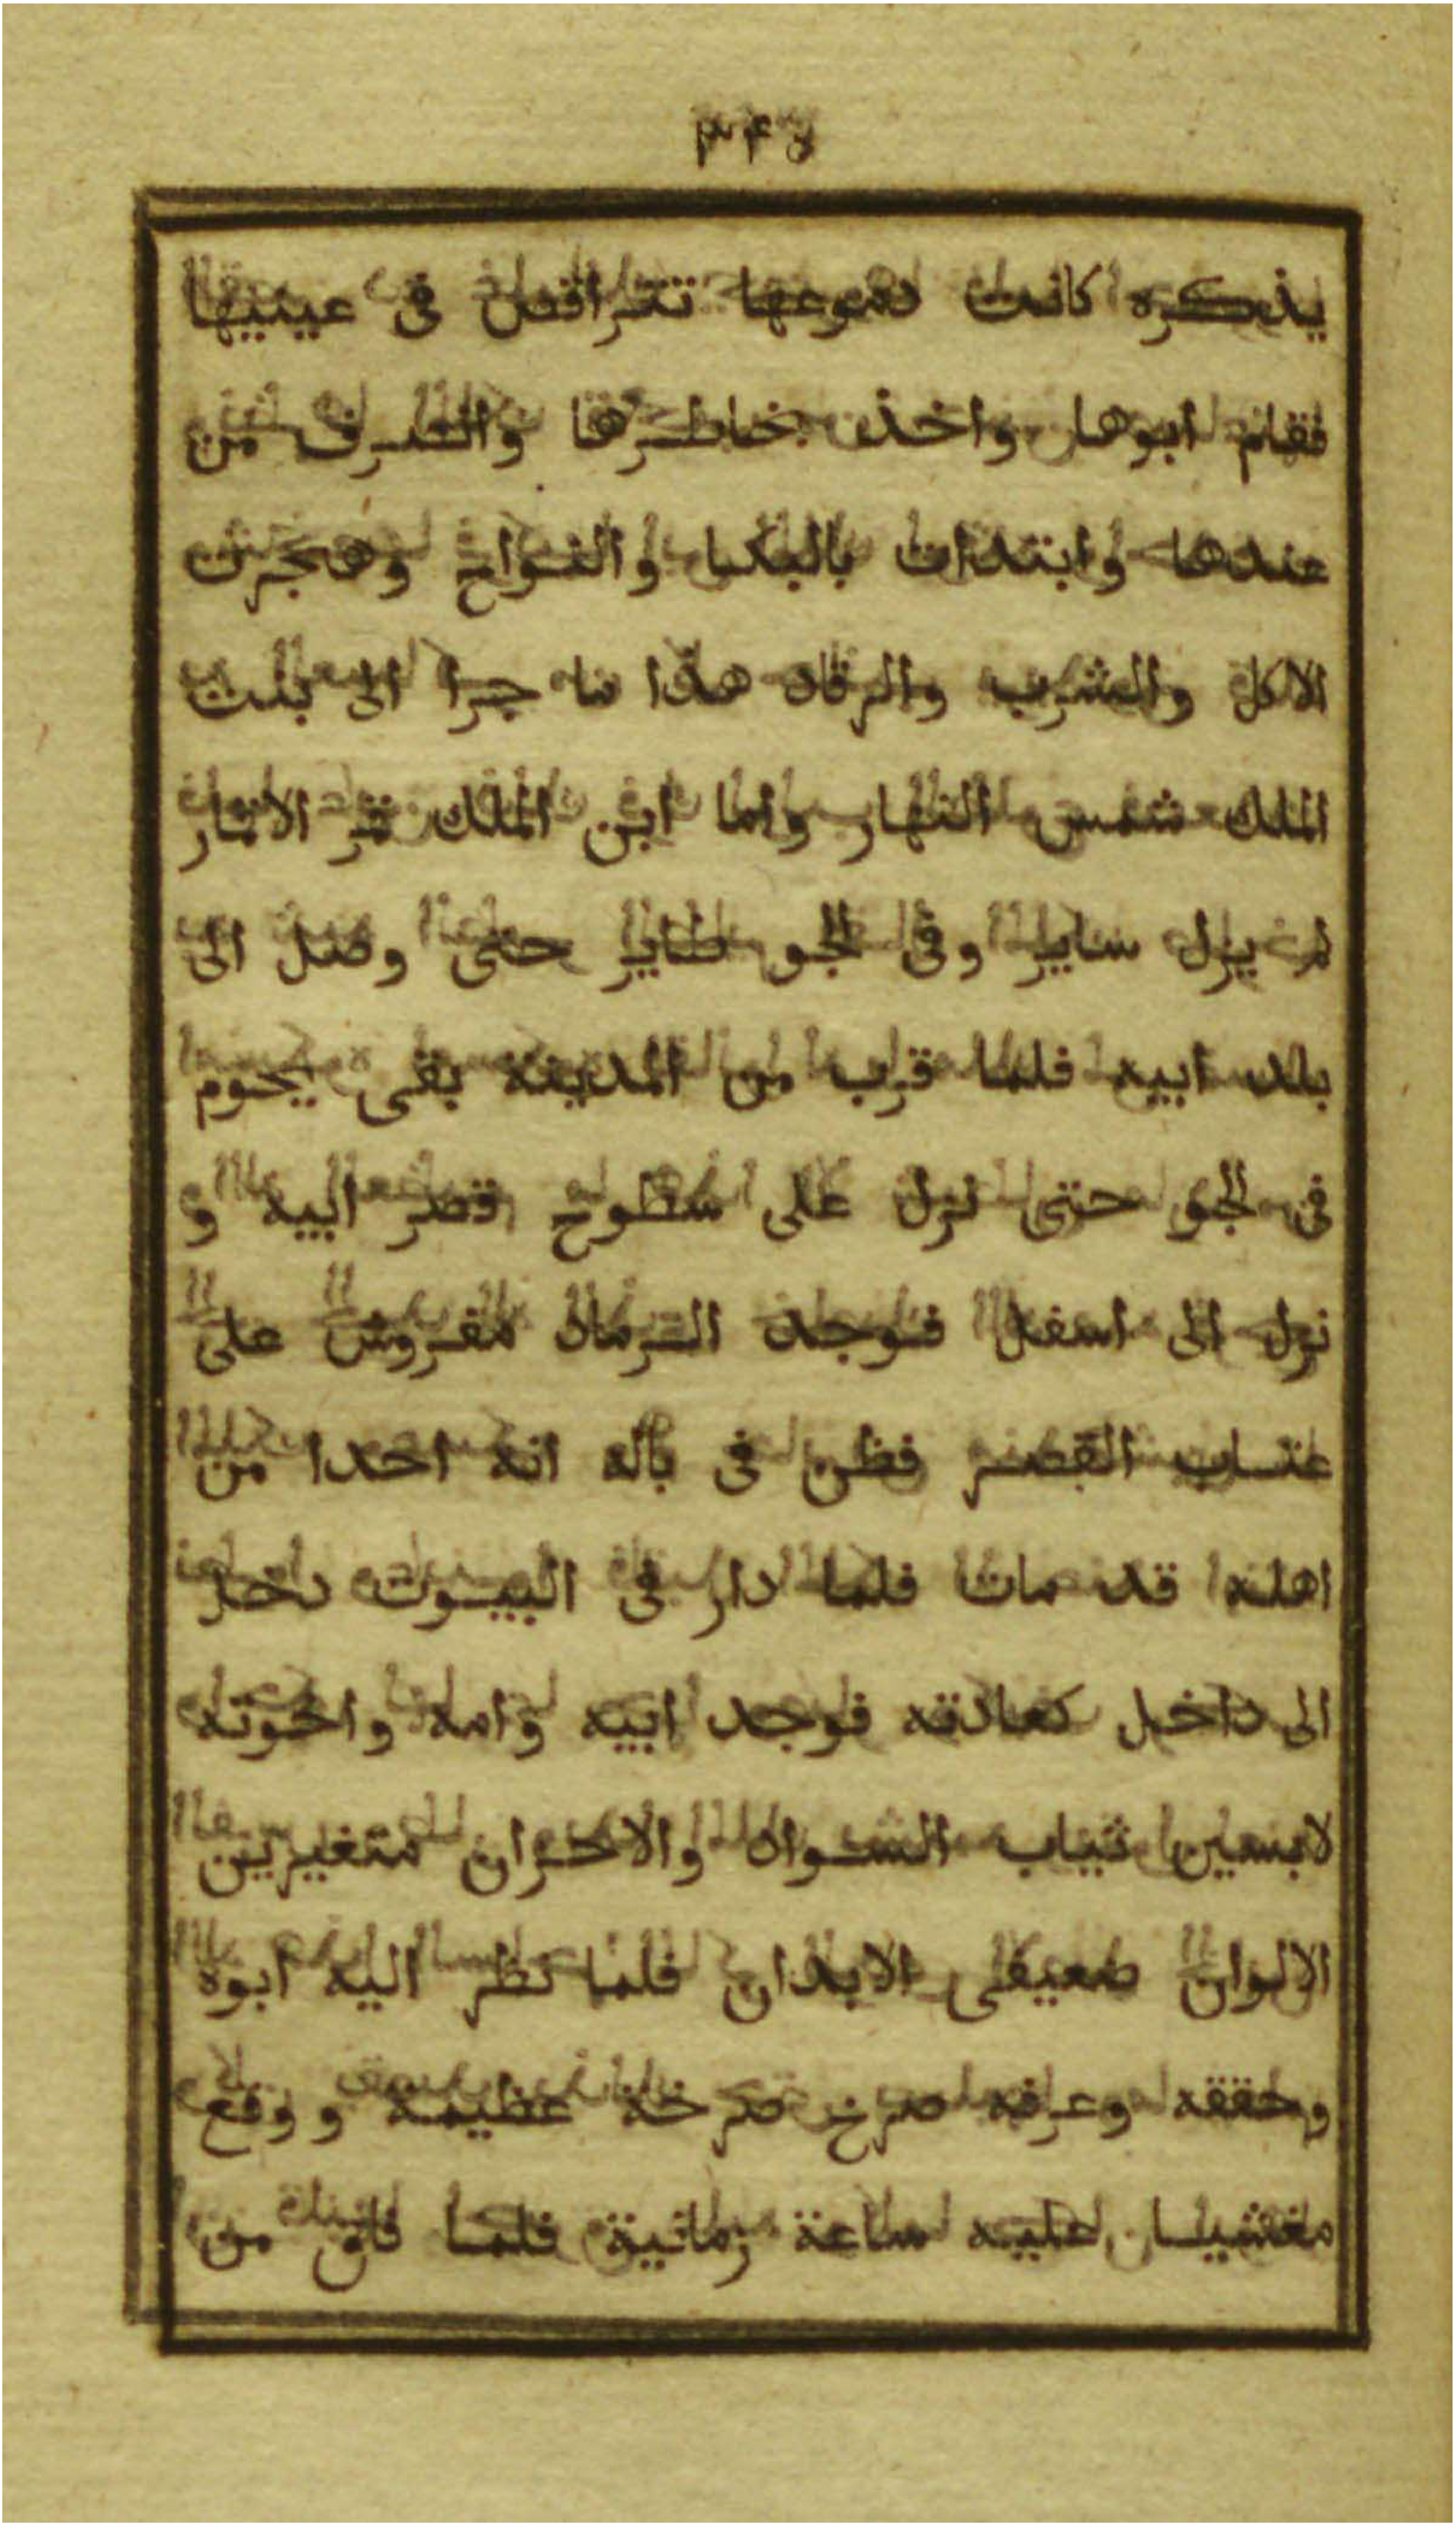 يذكره كانت دموعها تتراقص فى عينيها
فقام ابوها واخذ بخاطرها وانصرف من
عندها وابتدات بالبكا والنواح وهجرت
الاكل والشرب والرقاد هذا ما جرا الى بنت
الملك شمس النهار واما ابن الملك قمر الاقمار
لم يزل سايرا وفى الجو طايرا حتى وصل الى
بلد ابيه فلما قرب من المدينة بقى يحوم
فى الجو حتى نزل على سطوح قصر ابيه و
نزل الى اسفل فوجد الرماد مفروش على
عتاب القصر فظن فى باله انه احدا من
اهله قد مات فلما دار فى البيوت دخل
الى داخل كعادته فوجد ابيه وامه واخوته
لابسين ثياب السواد والاحزان متغيرين
الالوان ضعيفى الابدان فلما نظر اليه ابوه
وحققه وعرفه صرخ صرخة عظيمة ووقع
مغشيا عليه ساعة زمانية فلما فاق من